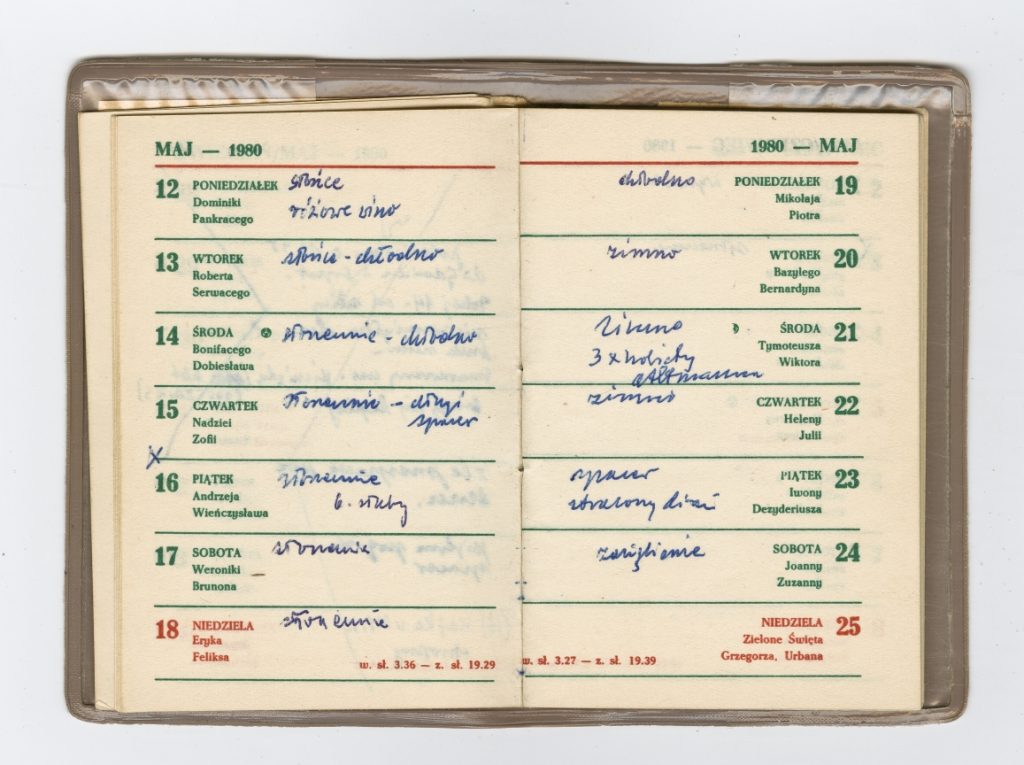 MAJ — 1980
12 PONIEDZIAŁEK słońce
Dominiki różowe wino
Pankracego
13 WTOREK słońce - chłodno
Roberta
Serwacego
14 ŚRODA słonecznie - chłodno
Bonifacego
Dobiesława
15 CZWARTEK słonecznie - długi
Nadziei spacer
Zofii
X
16 PIĄTEK słonecznie
Andrzeja b. słaby
Wieńczysława
17 SOBOTA słonecznie
Weroniki
Brunona
18 NIEDZIELA słonecznie
Eryka
Feliksa
w. sł. 3.36 — z. sł. 19.29
1980 — MAJ
chłodno PONIEDZIAŁEK 19
Mikołaja
Piotra
zimno WTOREK 20
Bazylego
Bernardyna
zimno ŚRODA 21
3 x kobiety Tymoteusza
Altmana Wiktora
zimno CZWARTEK 22
Heleny
Julii
spacer PIĄTEK 23
stracony dzień Iwony
Dezyderiusza
SOBOTA 24
Joanny
Zuzanny
NIEDZIELA 25
Zielone Święta
Grzegorza, Urbana
w. sł. 3.27 — z. sł. 19.39